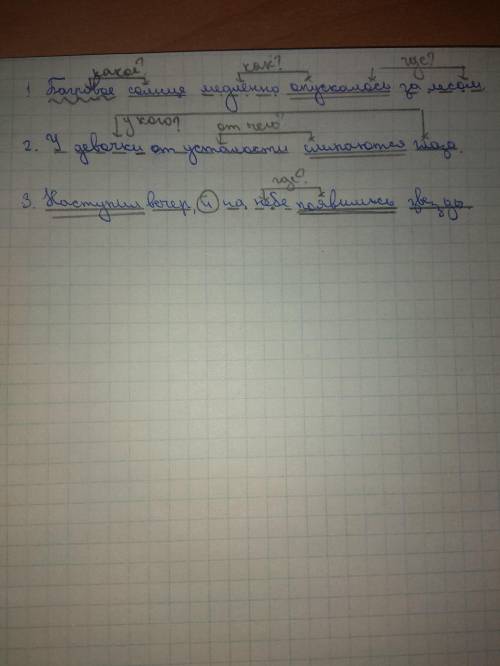 какое? как? где?
1. Багровое солнце медленно опускалось за лесом.
у кого? от чего?
2. У девочки от усталости слипаются глаза.
где?
3. Наступил вечер, и на небе появились звёзды.